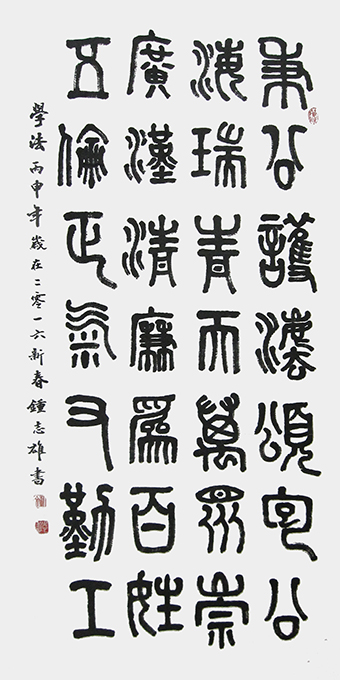 秉公護灋頌包公
海瑞青天萬眾崇
廣漢清廉爲百姓
五倫正氣又勤工
學法 丙申年歲在二零一六新春鍾志雄書